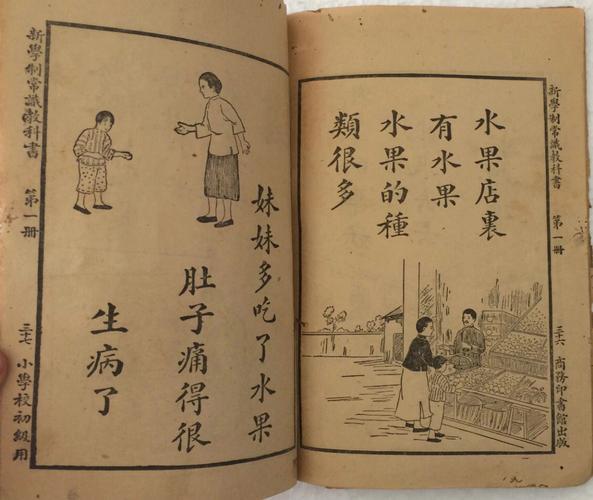 新學制常識教科書 第一冊 三十六 商務印書館出版
水果店裏
有水果
水果的種
類很多
妹妹多吃了水果
肚子痛得很
生病了
新學制常識教科書 第一冊 三十七 小學校初級用